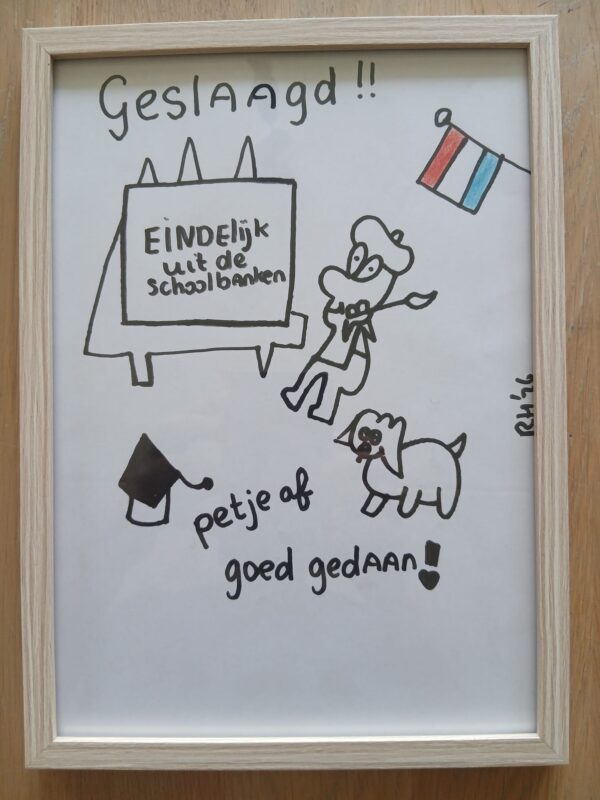 GeslAAgd !!
EiNDElijk
uit de
schoolbanken
RH'26
petje af
goed gedAAn!